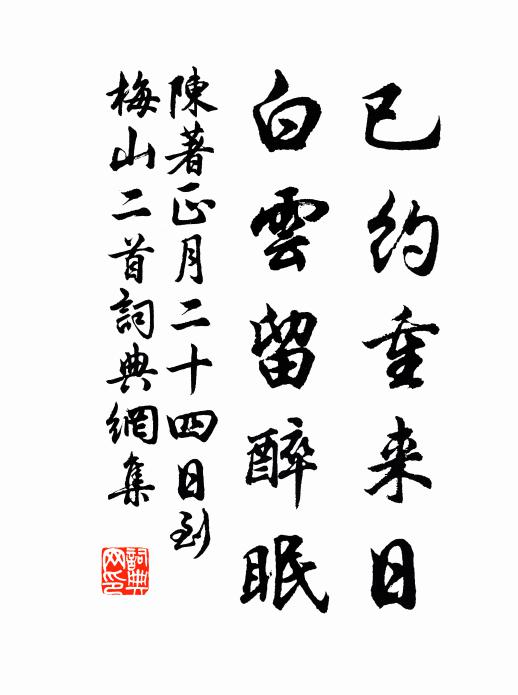 已约重来日
白雲留醉眠
陳著正月二十四日到
梅山二首詞典網集
詞典網印